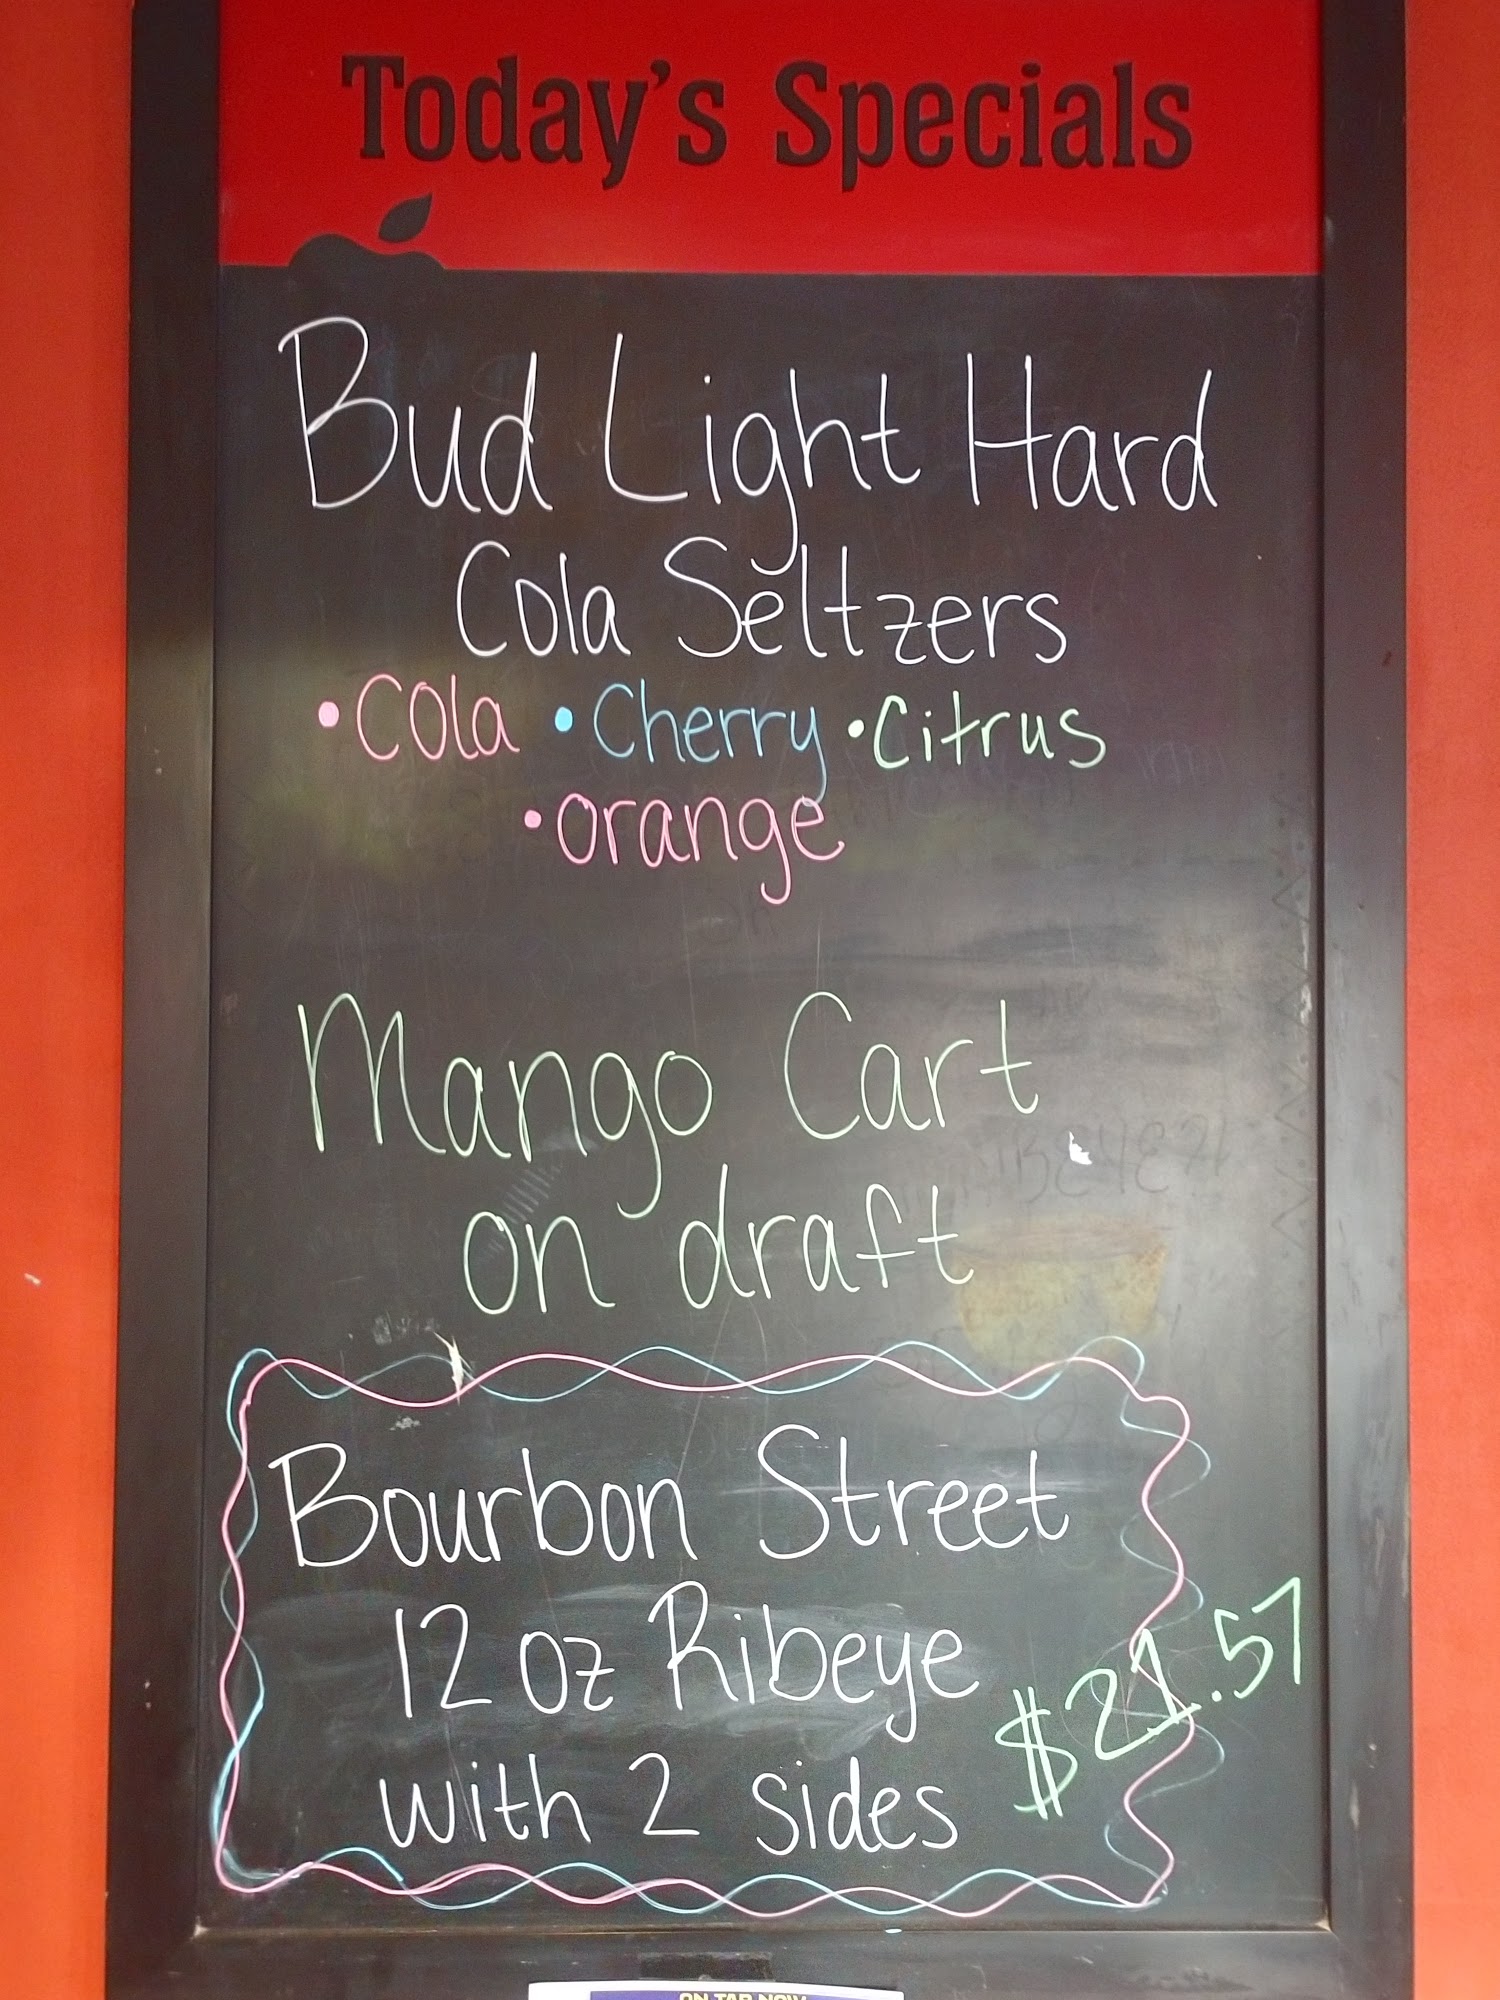 Today's Specials
Bud Light Hard
Cola Seltzers
•Cola •Cherry •Citrus
•orange
Mango Cart
on draft
Bourbon Street
12 oz Ribeye
with 2 sides
$21.57
ON TAP NOW